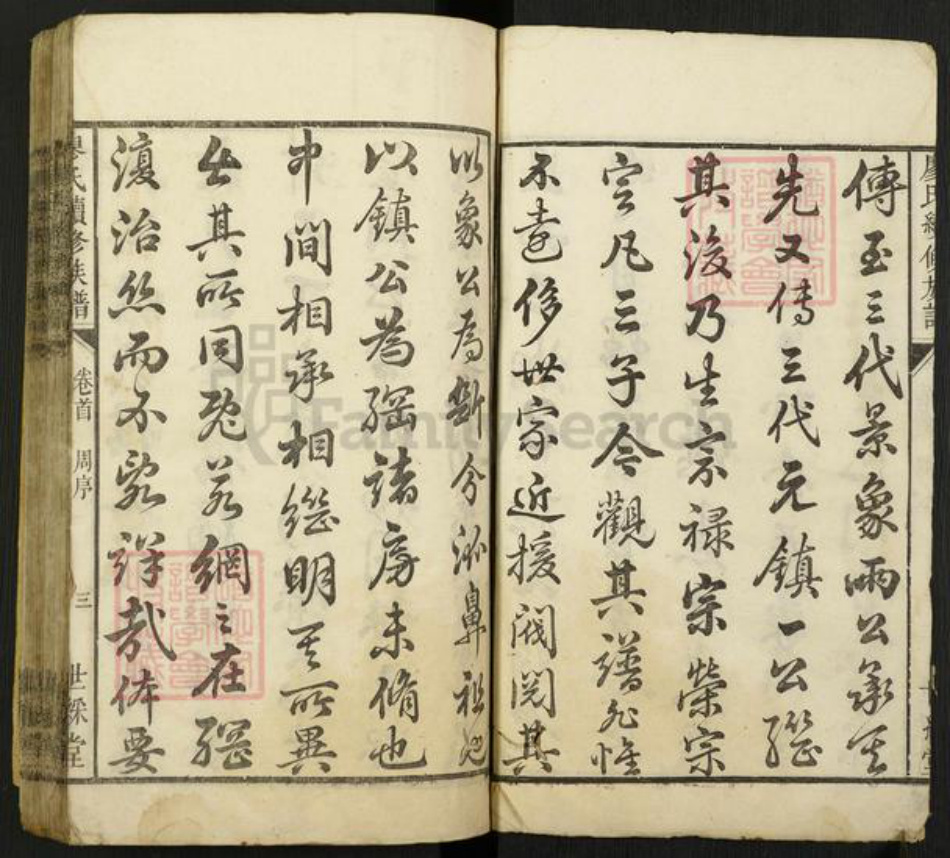 廖氏續修族譜
傳至三代景象兩公承其
先又傳三代元鎮一公繼
其後乃生宗祿宗榮宗
凡三子今觀其譜非惟
不遠侈世家近援閥閱其
以象公為斷分派鼻祖也
以鎮公為綱諸房未脩也
中間相承相繼明其所異
其所同既若網之在綱
復治然而不詳哉体要
廖氏續修族譜 卷首 周序 三 世綵堂